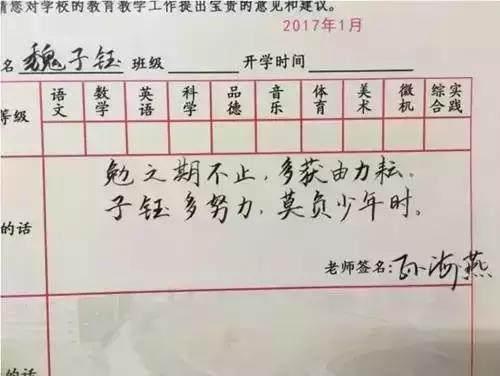 请您对学校的教育教学工作提出宝贵的意见和建议。
2017年1月
名 魏子钰 班级 开学时间
等级 语文 数学 英语 科学 品德 音乐 体育 美术 微机 综合实践
勉之期不止,多获由力耘。
子钰多努力,莫负少年时。
的话
老师签名:孙海燕
的话